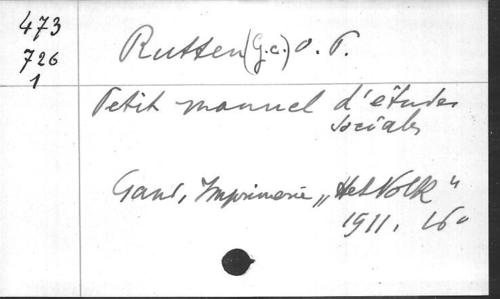 473
726
1
Rutten (G.C.) O. P.
Petit manuel d'études
sociales
Gand, Imprimerie „Het Volk"
1911. 16°